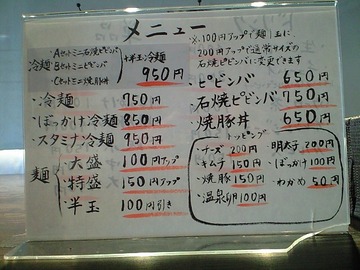 メニュー
冷麺
Aセットミニ石焼ビビンバ
Bセットミニビビンバ
Cセットミニ焼豚丼
+半玉冷麺
950円
・冷麺 750円
・ぶっかけ冷麺 850円
・スタミナ冷麺 950円
麺
・大盛 100円アップ
・特盛 150円アップ
・半玉 100円引き
※100円アップで麺1玉に
200円アップで通常サイズの
石焼ビビンバに変更できます
・ビビンバ 650円
・石焼ビビンバ 750円
・焼豚丼 650円
トッピング
・チーズ 200円 ・明太子 200円
・キムチ 150円 ・ぶっかけ 100円
・焼豚 150円 ・わかめ 50円
・温泉卵 100円